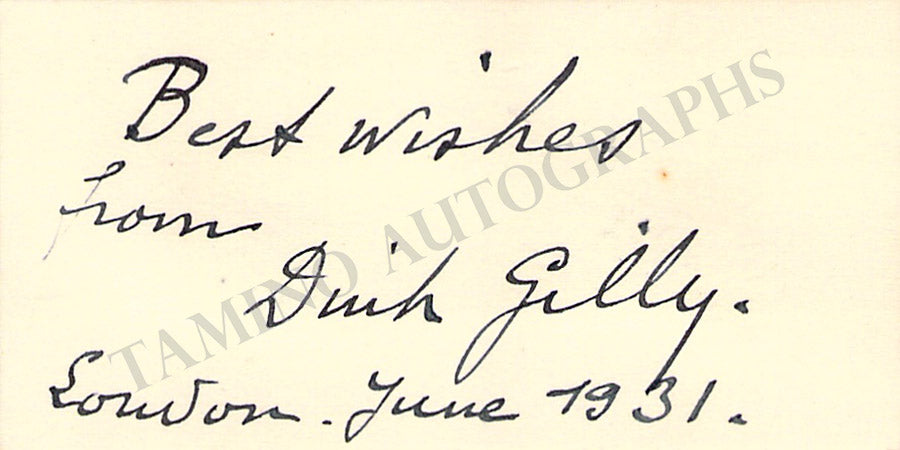 Best wishes
from
Dinh Gilly.
London. June 1931.
TAMINO AUTOGRAPHS